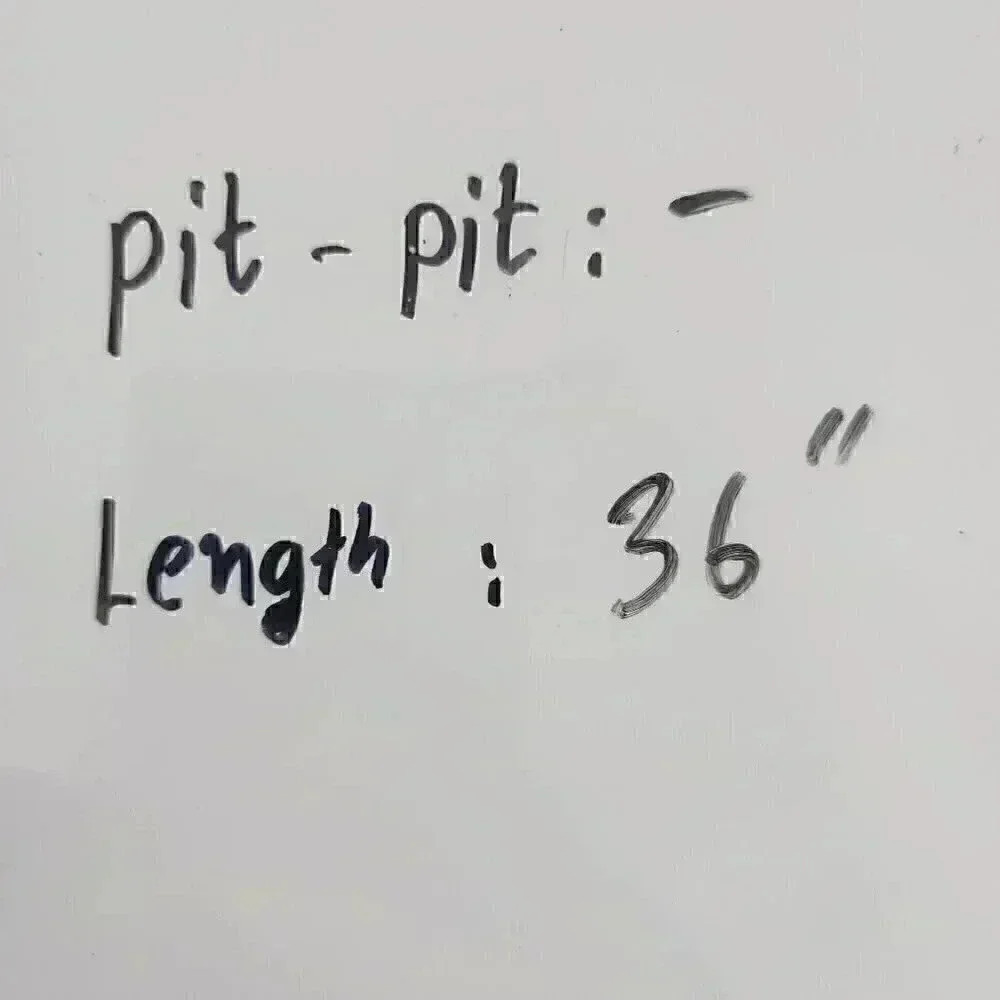 pit - pit : -
Length : 36"